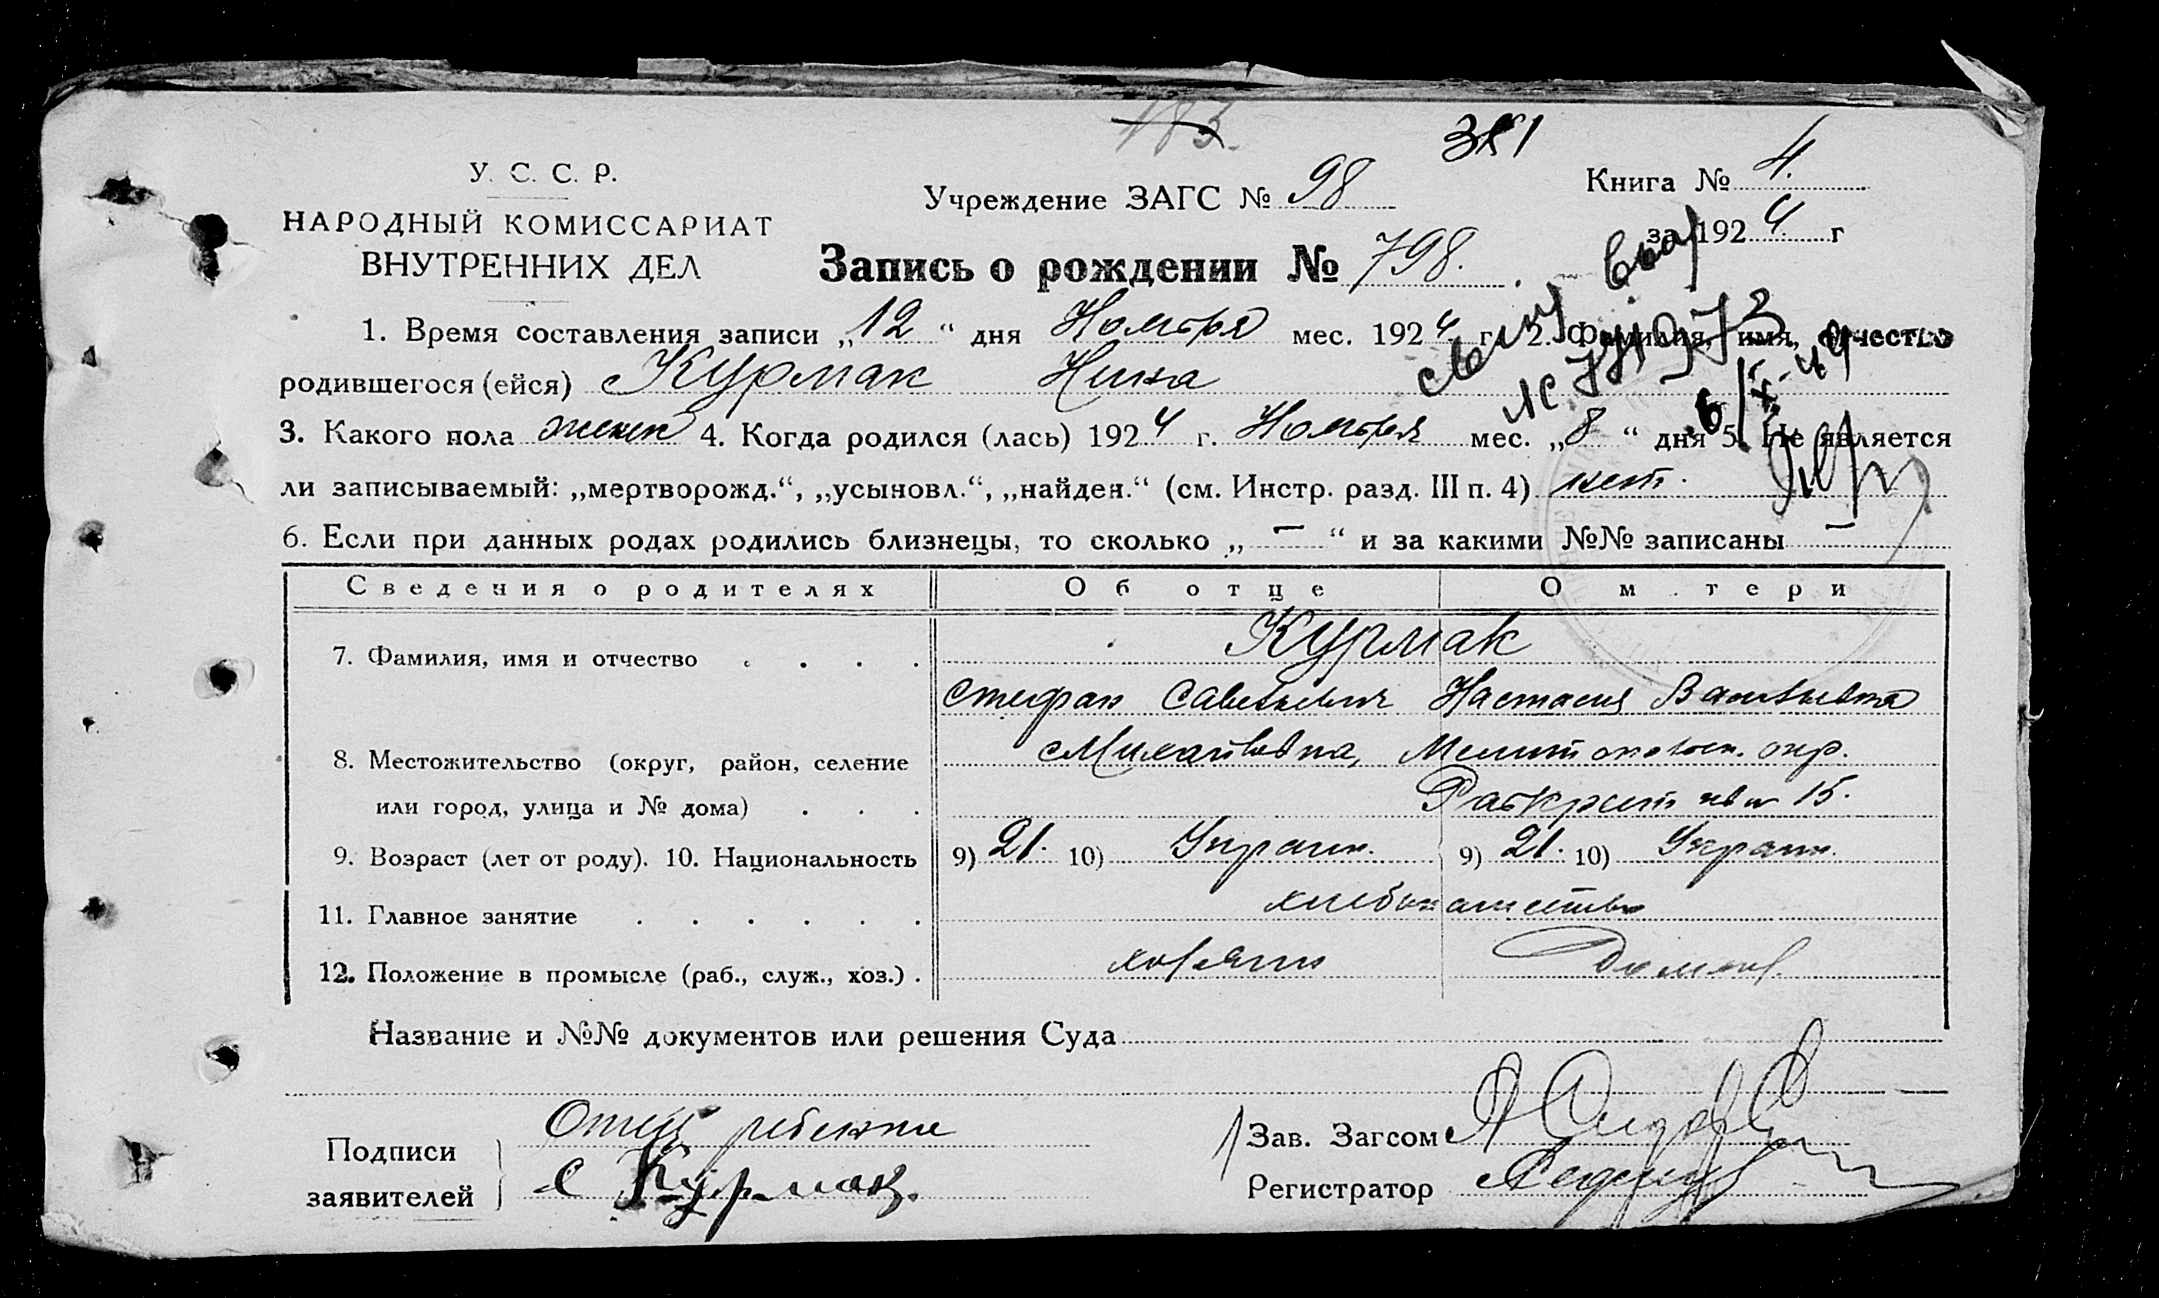 183.
381
У. С. С. Р.
НАРОДНЫЙ КОМИССАРИАТ
ВНУТРЕННИХ ДЕЛ
Учреждение ЗАГС № 98
Книга № 4.
за 1924 г
Запись о рождении № 798.
1. Время составления записи „12“ дня Ноября мес. 1924 г. 2. Фамилия, имя, отчество
родившегося (ейся) Курмак Нина
3. Какого пола женск 4. Когда родился (лась) 1924 г. Ноября мес. „8“ дня 5. Не является
ли записываемый: „мертворожд.“, „усыновл.“, „найден.“ (см. Инстр. разд. III п. 4) нет.
6. Если при данных родах родились близнецы, то сколько „—“ и за какими №№ записаны —
Сведения о родителях Об отце О м тери
7. Фамилия, имя и отчество Курмак
Стефан Савельевич Настасия Васильевна
8. Местожительство (округ, район, селение Михайловка, Мелитопольск. окр.
или город, улица и № дома) 15.
9. Возраст (лет от роду). 10. Национальность 9) 21. 10) Украин. 9) 21. 10) Украин.
11. Главное занятие хлебопашество
12. Положение в промысле (раб., служ., хоз.) хозяин Домохоз.
Название и №№ документов или решения Суда
Подписи заявителей Отец ребенка
С Курмак.
Зав. Загсом
Регистратор